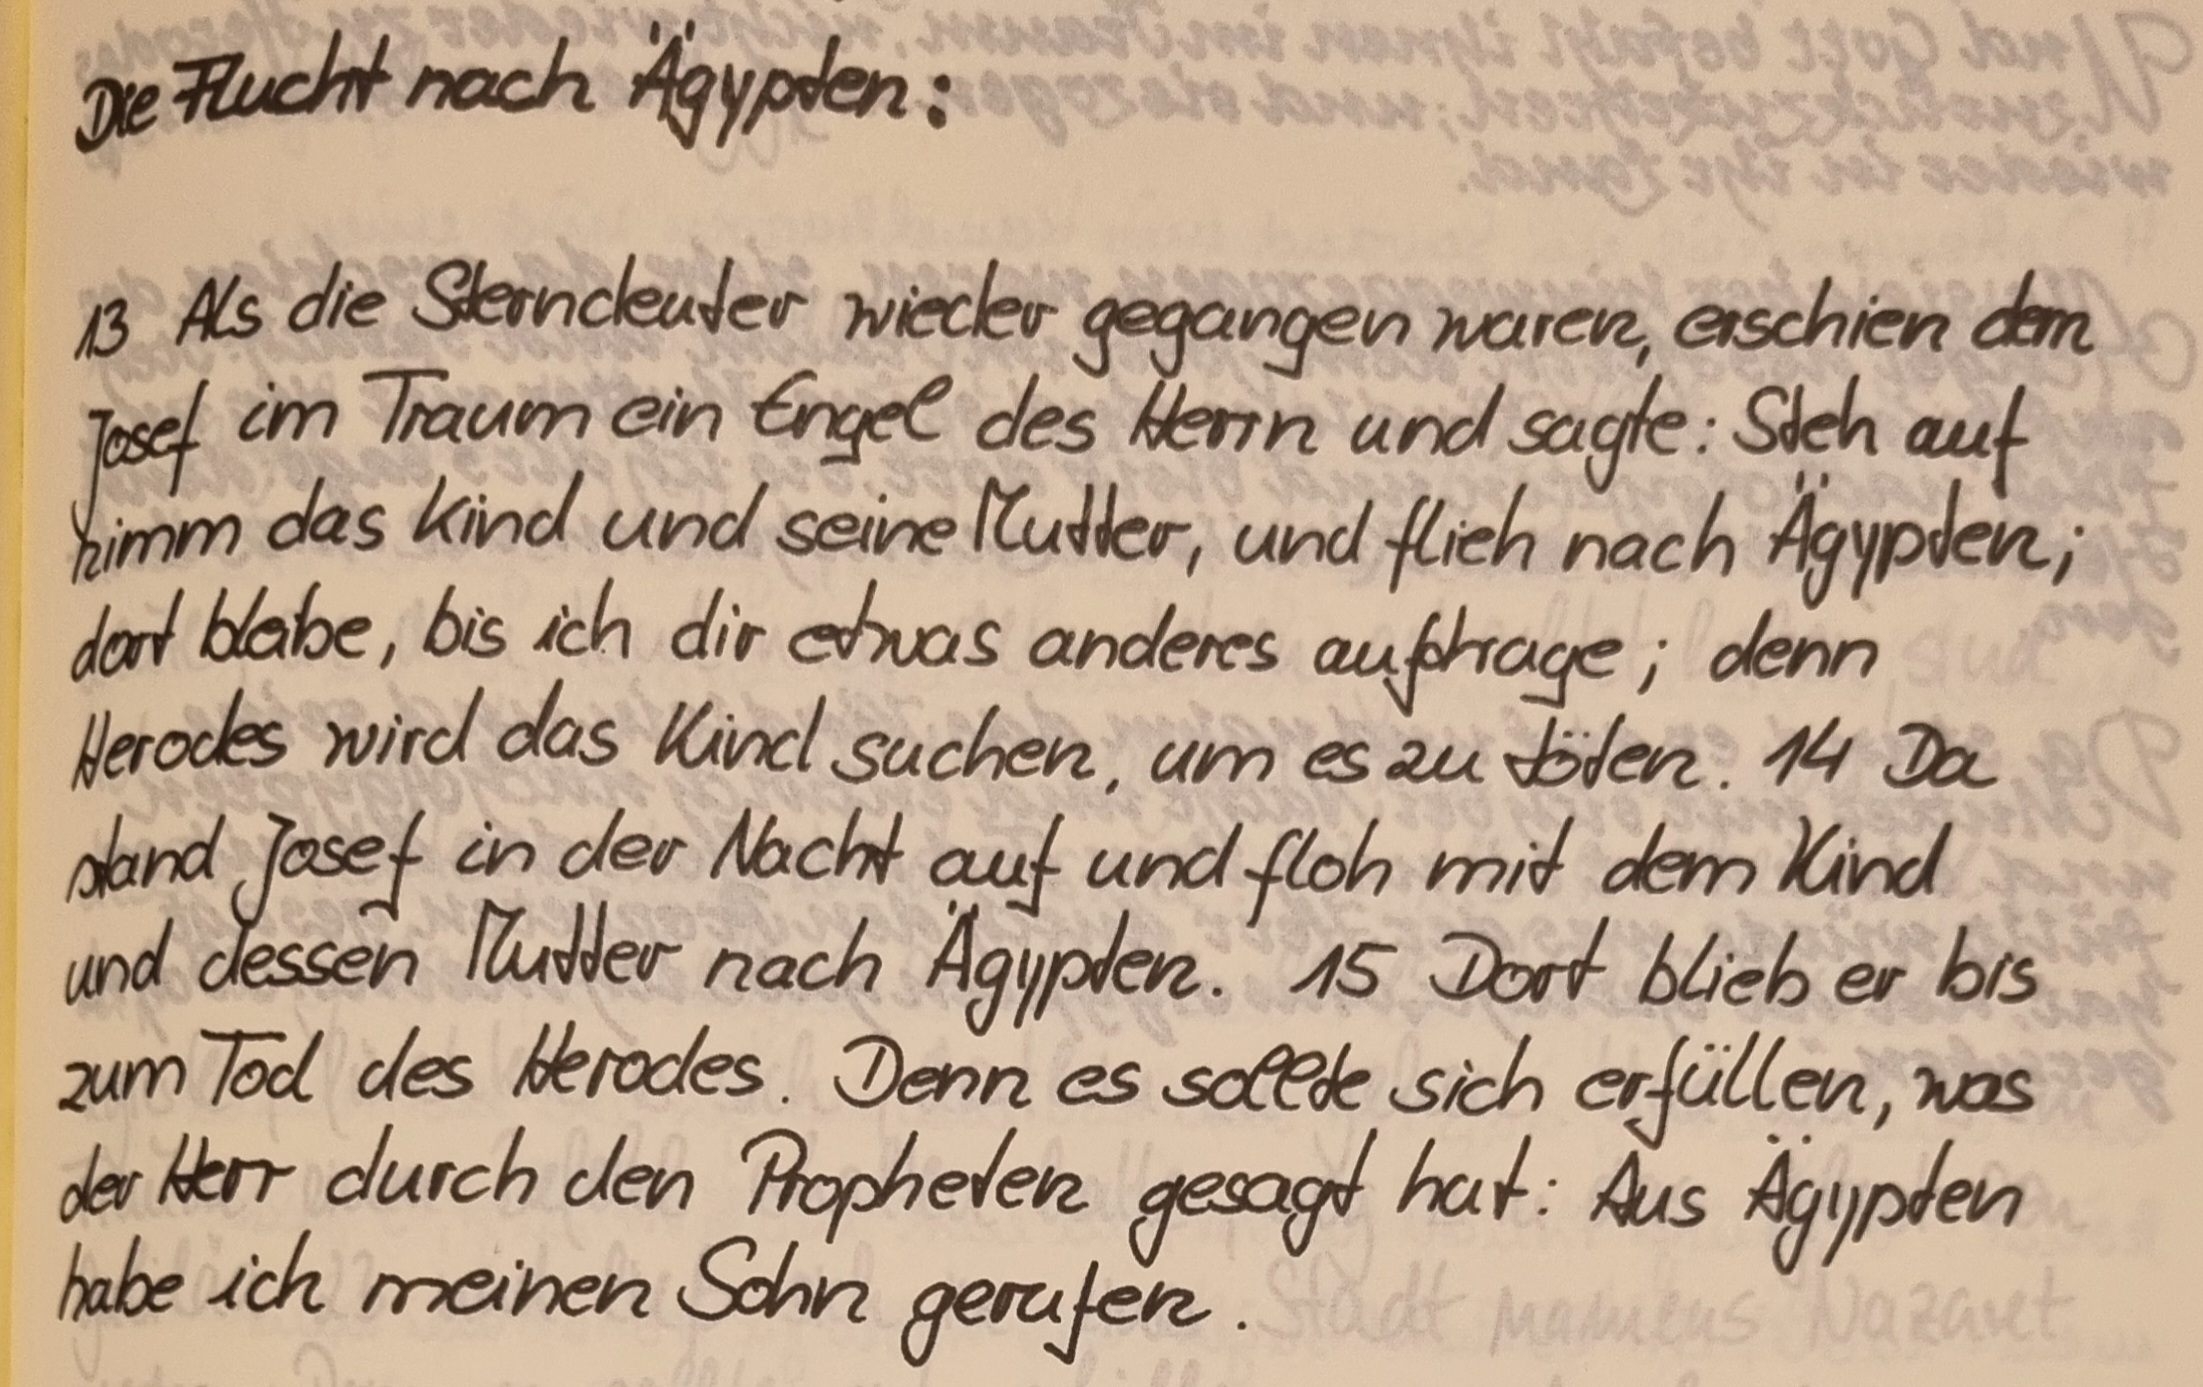 Die Flucht nach Ägypten:
13 Als die Sterndeuter wieder gegangen waren, erschien dem
Josef im Traum ein Engel des Herrn und sagte: Steh auf
nimm das Kind und seine Mutter, und flieh nach Ägypten;
dort bleibe, bis ich dir etwas anderes auftrage; denn
Herodes wird das Kind suchen, um es zu töten. 14 Da
stand Josef in der Nacht auf und floh mit dem Kind
und dessen Mutter nach Ägypten. 15 Dort blieb er bis
zum Tod des Herodes. Denn es sollte sich erfüllen, was
der Herr durch den Propheten gesagt hat: Aus Ägypten
habe ich meinen Sohn gerufen. Stadt namens Nazaret